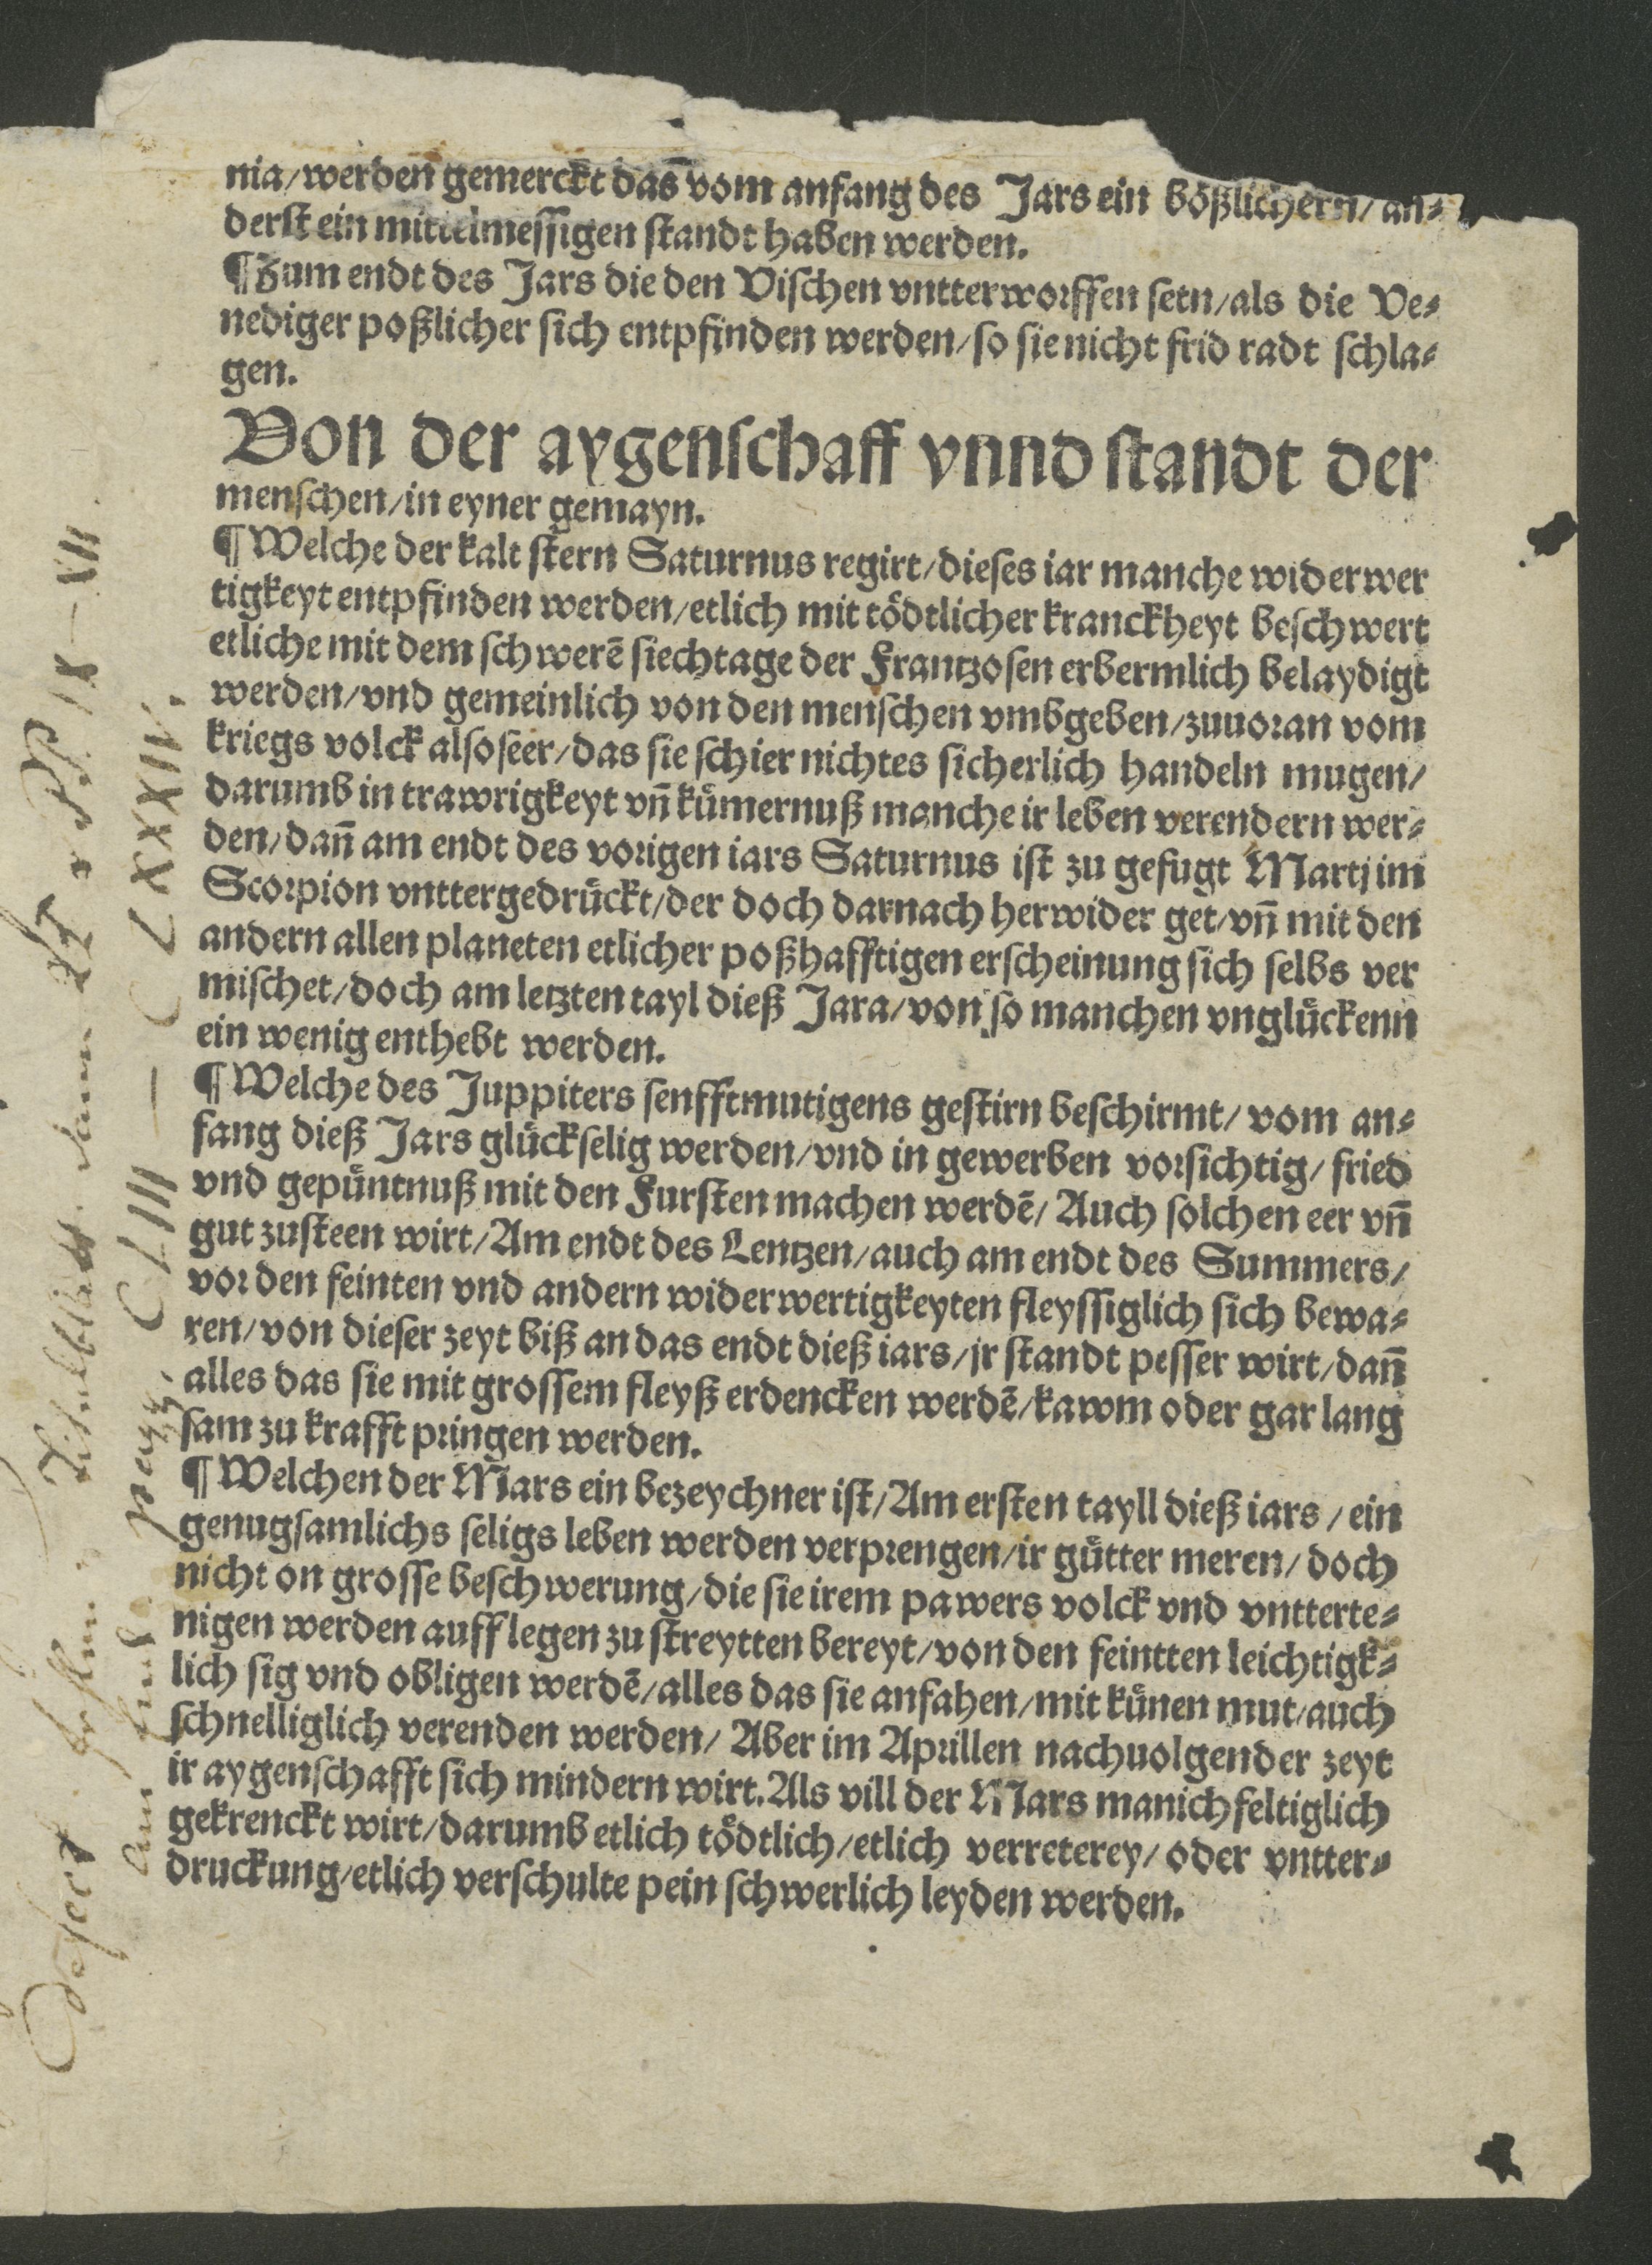 nia/werden gemerckt das̄ vom anfang des Jars ein bößlichern/an⸗
derst ein mittelmessigen standt haben werden.
¶Zum endt des Jars die den Vischen vntterworffen setn/als die Ve⸗
nediger poßlicher sich entpfinden werden/so sie nicht frid radt schla⸗
gen.
Von der aygenschaff vnnd standt der
menschen/in eyner gemayn.
¶Welche der kalt stern Saturnus regirt/dieses iar manche widerwer
tigkeyt entpfinden werden/etlich mit tödtlicher kranckheyt beschwert
etliche mit dem schwerē siechtage der Frantzosen erbermlich belaydigt
werden/vnd gemeinlich von den menschen vmbgeben/zuuoran vom
kriegs volck also seer/das sie schier nichtes sicherlich handeln mugen/
darumb in trawrigkeyt vn̄ kümernuß manche ir leben verendern wer⸗
den/dan̄ am endt des vorigen iars Saturnus ist zu gefugt Martj im
Scorpion vnttergedrückt/der doch darnach herwider get/vn̄ mit den
andern allen planeten etlicher poßhafftigen erscheinung sich selbs ver
mischet/doch am letzten tayl dieß Jara/von so manchen vnglückenn
ein wenig enthebt werden.
¶Welche des Juppiters senfftmutigens gestirn beschirmt/ vom an⸗
fang dieß Jars glückselig werden/vnd in gewerben vorsichtig/ fried
vnd gepüntnuß mit den Fursten machen werdē/ Auch solchen eer vn̄
gut zusteen wirt/Am endt des Lentzen/auch am endt des Summers/
vor den feinten vnd andern widerwertigkeyten fleyssiglich sich bewa⸗
ren/von dieser zeyt biß an das endt dieß iars/jr standt pesser wirt/dan̄
alles das sie mit grossem fleyß erdencken werdē/kawm oder gar lang
sam zu krafft pringen werden.
¶Welchen der Mars ein bezeychner ist/Am ersten tayll dieß iars/ein
genugsamlichs seligs leben werden verprengen/ir gütter meren/doch
nicht on grosse beschwerung/die sie irem pawers volck vnd vntterte⸗
nigen werden auff legen zu streytten bereyt/von den feintten leichtigk⸗
lich sig vnd obligen werdē/alles das sie anfahen/mit künen mut/auch
schnelliglich verenden werden/ Aber im Aprillen nachuolgender zeyt
ir aygenschafft sich mindern wirt.Als vill der Mars manichfeltiglich
gekrenckt wirt/darumb etlich tödtlich/etlich verreterey/oder vntter⸗
druckung/etlich verschulte pein schwerlich leyden werden.